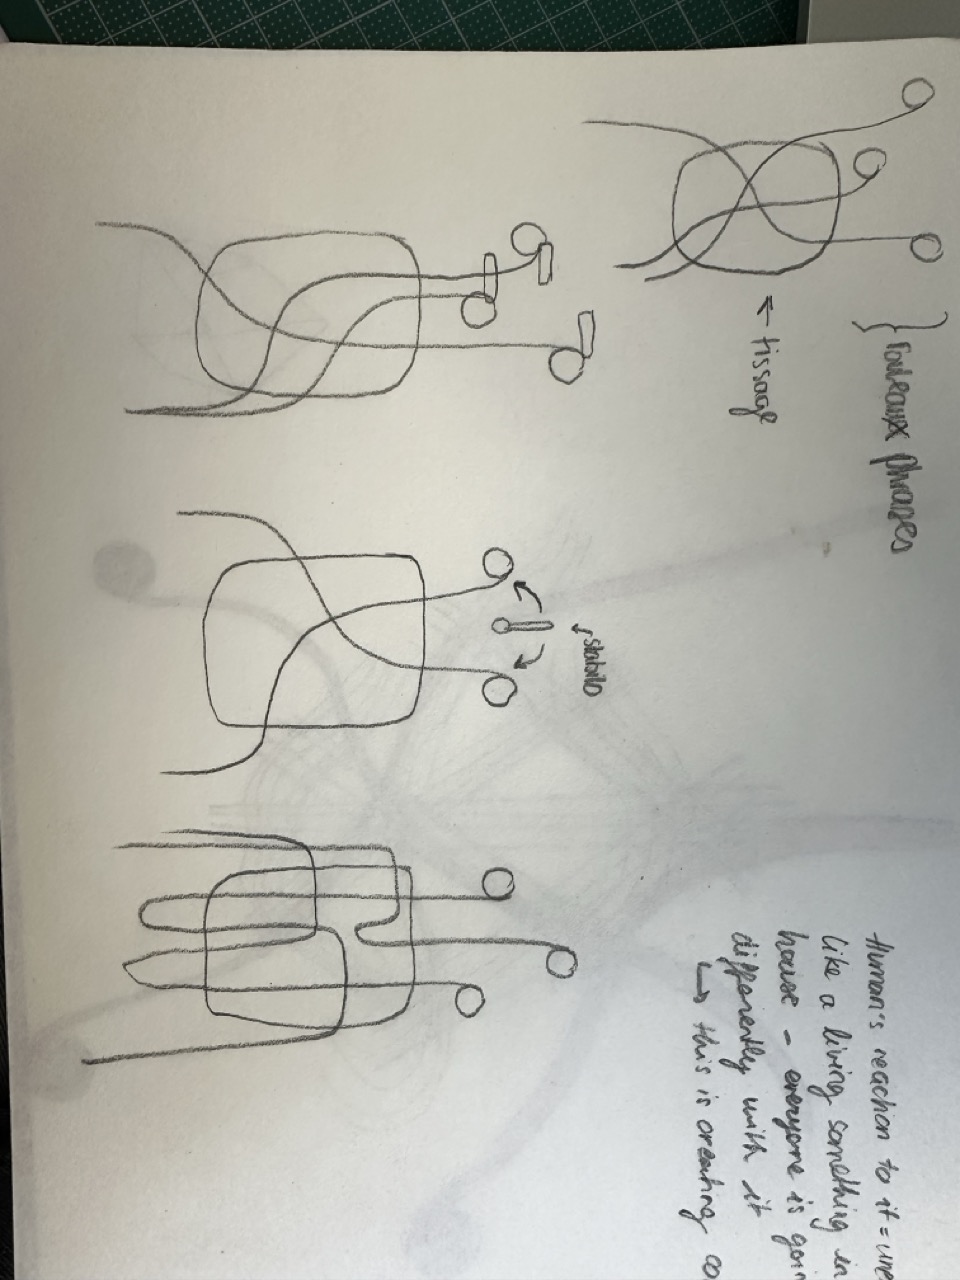 phrases
← tissage
stabilo
Human's reaction to it =
like a living something in
house - everyone is
differently with it
↳ this is creating